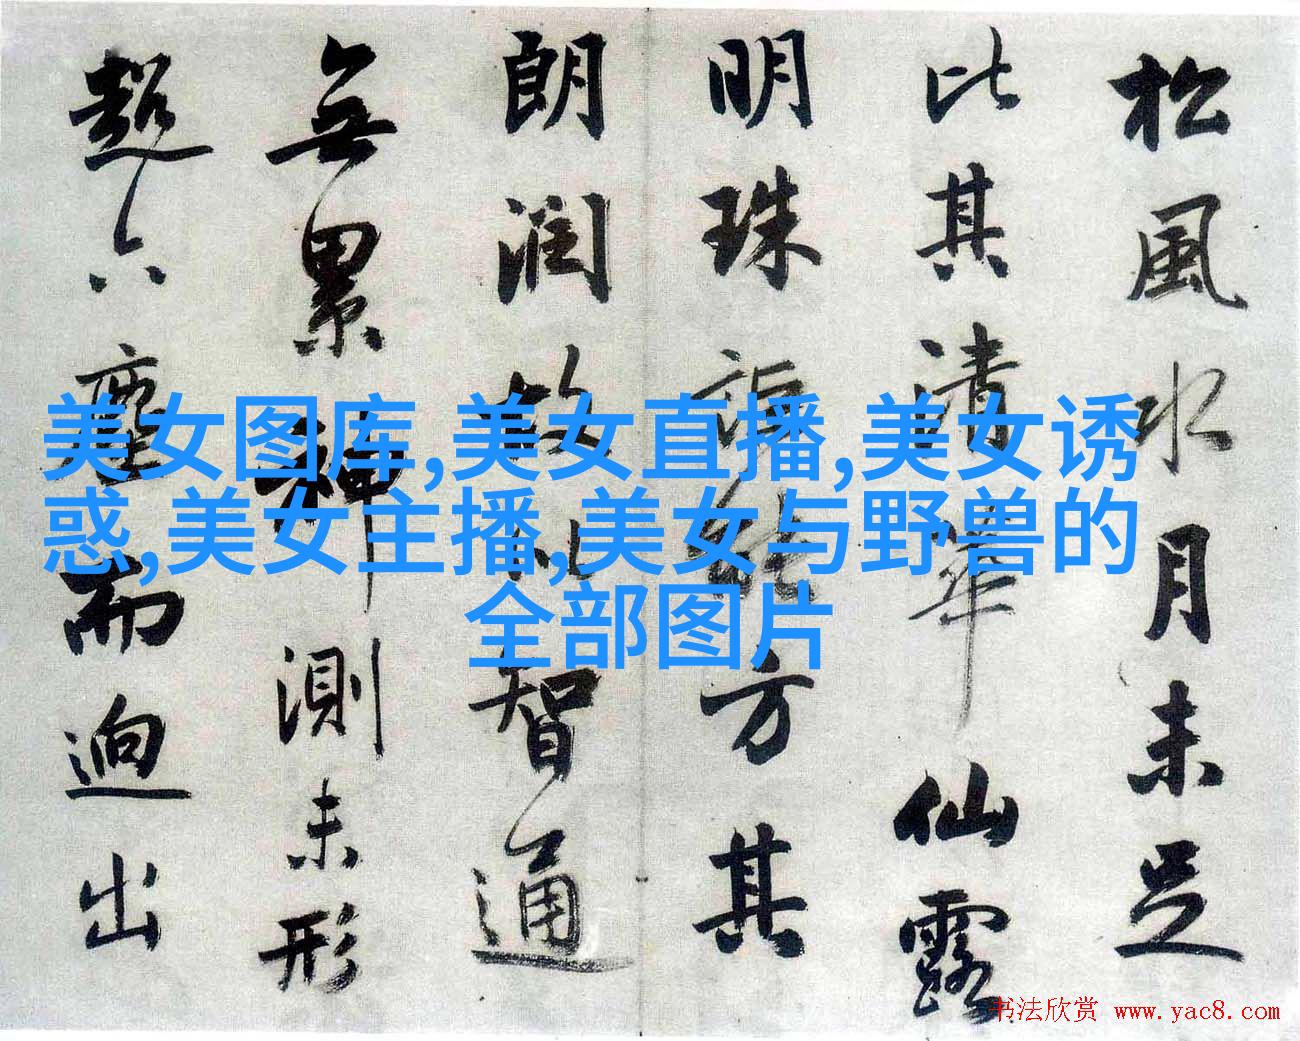 松風水月未足
比其清華仙露
明珠詎能方其
朗潤故以智通
無累神測未形
超六塵而迥出
美女图库,美女直播,美女诱
惑,美女主播,美女与野兽的
全部图片
书法欣赏 www.yac8.com